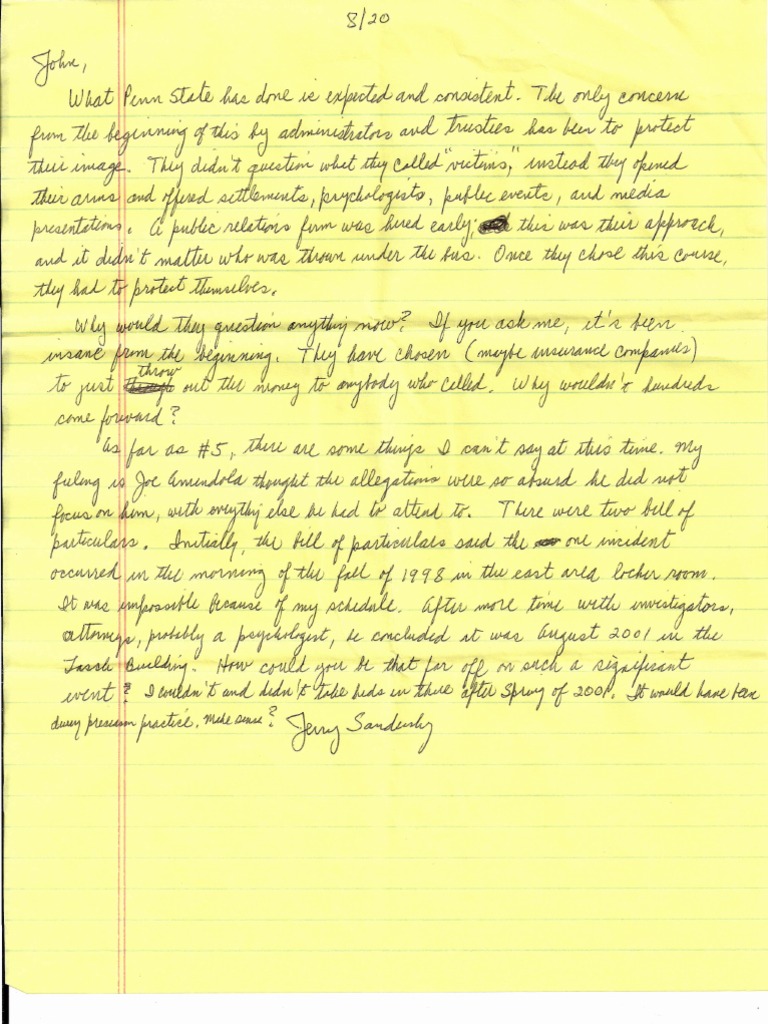 8/20
John,
What Penn State has done is expected and consistent. The only concern
from the beginning of this by administrators and trustees has been to protect
their image. They didn't question what they called "victims," instead they opened
their arms and offered settlements, psychologists, public events, and media
presentations. A public relations firm was hired early; this was their approach,
and it didn't matter who was thrown under the bus. Once they chose this course,
they had to protect themselves.
Why would they question anything now? If you ask me, it's been
insane from the beginning. They have chosen (maybe insurance companies)
to just throw out the money to anybody who called. Why wouldn't hundreds
come forward?
As far as #5, there are some things I can't say at this time. My
feeling is Joe Amendola thought the allegations were so absurd he did not
focus on him, with everything else he had to attend to. There were two bill of
particulars. Initially, the bill of particulars said the one incident
occurred in the morning of the fall of 1998 in the east area locker room.
It was impossible because of my schedule. After more time with investigators,
attorneys, probably a psychologist, he concluded it was August 2001 in the
Lasch Building. How could you be that far off on such a significant
event? I couldn't and didn't take kids in there after Spring of 2001. It would have been
during preseason practice. Make sense? Jerry Sandusky